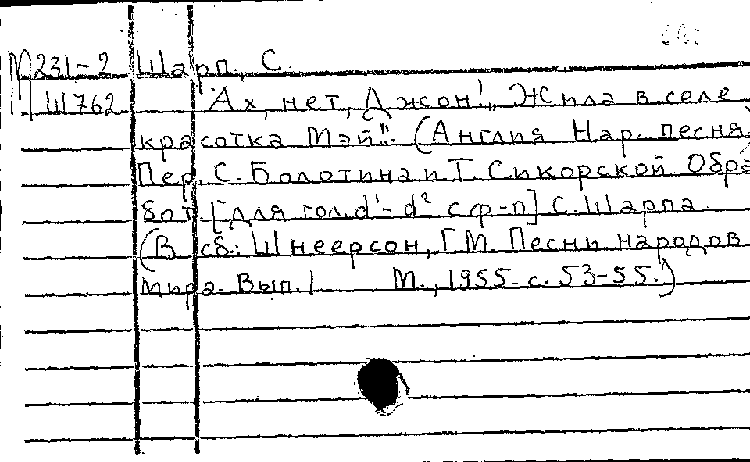 М231-2 Шарп, С.
Ш762 "Ах, нет, Джон!" Жила в селе
красотка Мэй". (Англия Нар. песня.
Пер. С. Болотина и Т. Сикорской Обра
бот [для гол. d¹-d² с ф-п] С. Шарпа.
(В сб.: Шнеерсон, Г М. Песни народов
мира. Вып. 1 М., 1955. с. 53-55.)